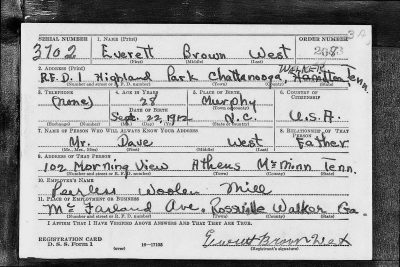 SERIAL NUMBER 1. NAME (Print) ORDER NUMBER
3702 Everett Brown West
(First) (Middle) (Last)
2. ADDRESS (Print)
R.F.D. 1 Highland Park Chattanooga, Hamilton Tenn.
(Number and street or R. F. D. number) (Town) (County) (State)
3. TELEPHONE 4. AGE IN YEARS 5. PLACE OF BIRTH 6. COUNTRY OF CITIZENSHIP
(none) 28 Murphy
DATE OF BIRTH (Town or county)
Sept. 22, 1912 N.C. U.S.A.
(Exchange) (Number) (Mo.) (Day) (Yr.) (State or country)
7. NAME OF PERSON WHO WILL ALWAYS KNOW YOUR ADDRESS 8. RELATIONSHIP OF THAT PERSON
Mr. Dave West Father
(Mr., Mrs., Miss) (First) (Middle) (Last)
9. ADDRESS OF THAT PERSON
102 Morning View Athens McMinn Tenn.
(Number and street or R. F. D. number) (Town) (County) (State)
10. EMPLOYER'S NAME
Peerless Woolen Mill
11. PLACE OF EMPLOYMENT OR BUSINESS
McFarland Ave. Rossville Walker Ga.
(Number and street or R. F. D. number) (Town) (County) (State)
I AFFIRM THAT I HAVE VERIFIED ABOVE ANSWERS AND THAT THEY ARE TRUE.
REGISTRATION CARD
D. S. S. Form 1 (over) 16—17105 Everett Brown West
(Registrant's signature)